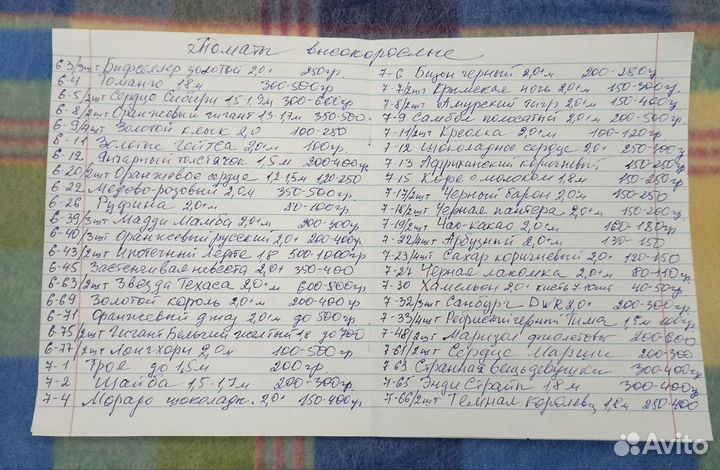 Томаты высокорослые
6-3/3шт Бифселлер золотой 2,0+ 250гр.
6-4 Романго 1.8м 300-500гр
6-5/2шт Сердце Сибири 1.5-1.9м 300-600гр
6-8/2шт Оранжевый гигант 1.3-1.7м 350-500.
6-9/4шт Золотой клык 2,0 100-250
6-11 Золотые 2,0м 100гр.
6-12 Янтарный толстячок 1,5м 200-400гр
6-20/2шт Оранжевое сердце 1.2-1.5м 120-250
6-22 Медово-розовый 2,0м 350-500гр.
6-26 Руфина 2.0м 80-100гр
6-39/3шт Мадди Мамба 2,0+м 200-300гр.
6-40/3шт Оранжевый русский 2,0+ 200-400гр.
6-43/2шт Ипотечный 1.8 500-1000гр
6-45 Застенчивая невеста 2,0+ 350-400
6-63/2шт Звезда Техаса 2.0+м 600-800гр
6-69 Золотой король 2,0+м 200-400гр
6-71 Оранжевый джаз 2,0м до 500гр
6-75/2шт Гигант Бельгии желтый 1.8 до 700
6-77/2шт Лонгхорн 2,0м 100-500гр
7-1 Троя до 1,5м 200гр.
7-2 Шайба 1,5-1,7м 200-300гр.
7-4 шоколадн. 2,0+ 150-400гр.
7-6 Бизон черный 2,0+м 200-250гр.
7-7/2шт Крымская ночь 2,0м 150-300гр
7-8/2шт Амурский тигр 2,0м 150-400гр
7-9 Самбо полосатый 2,0м 200-500гр.
7-11/2шт Креолка 2,0м 100-120гр.
7-12 Шоколадное сердце 2,0+ 250-300гр
7-13 коричневый 150-250гр
7-15 Кофе с молоком 1.8м 150-250гр.
7-17/2шт Черный барон 2,0м 150-250
7-18/2шт Черная пантера 2.0м 150-200гр.
7-19/2шт Чао-какао 2,0м 160-180гр
7-22/4шт Арбузный 2.0+м 130-150
7-23/4шт Сахар коричневый 2.0+ 120-150
7-27 Черная лакомка 2.0м 80-110гр.
7-30 Хамелеон 2.0+ кисть 7-10шт 40-50гр
7-32/3шт Санбург 2,0+ 200-300гр.
7-33/4шт Тима 1,5м 100гр.
7-48/2шт фиолетовые 200-600
7-61/2шт Сердце Марши 200-300
7-63 Странная вещь девушки 300-400гр
7-65 Энди Страйп 1.8м 300-400гр
7-66/2шт Темная королева 1,8м 250-400
Avito